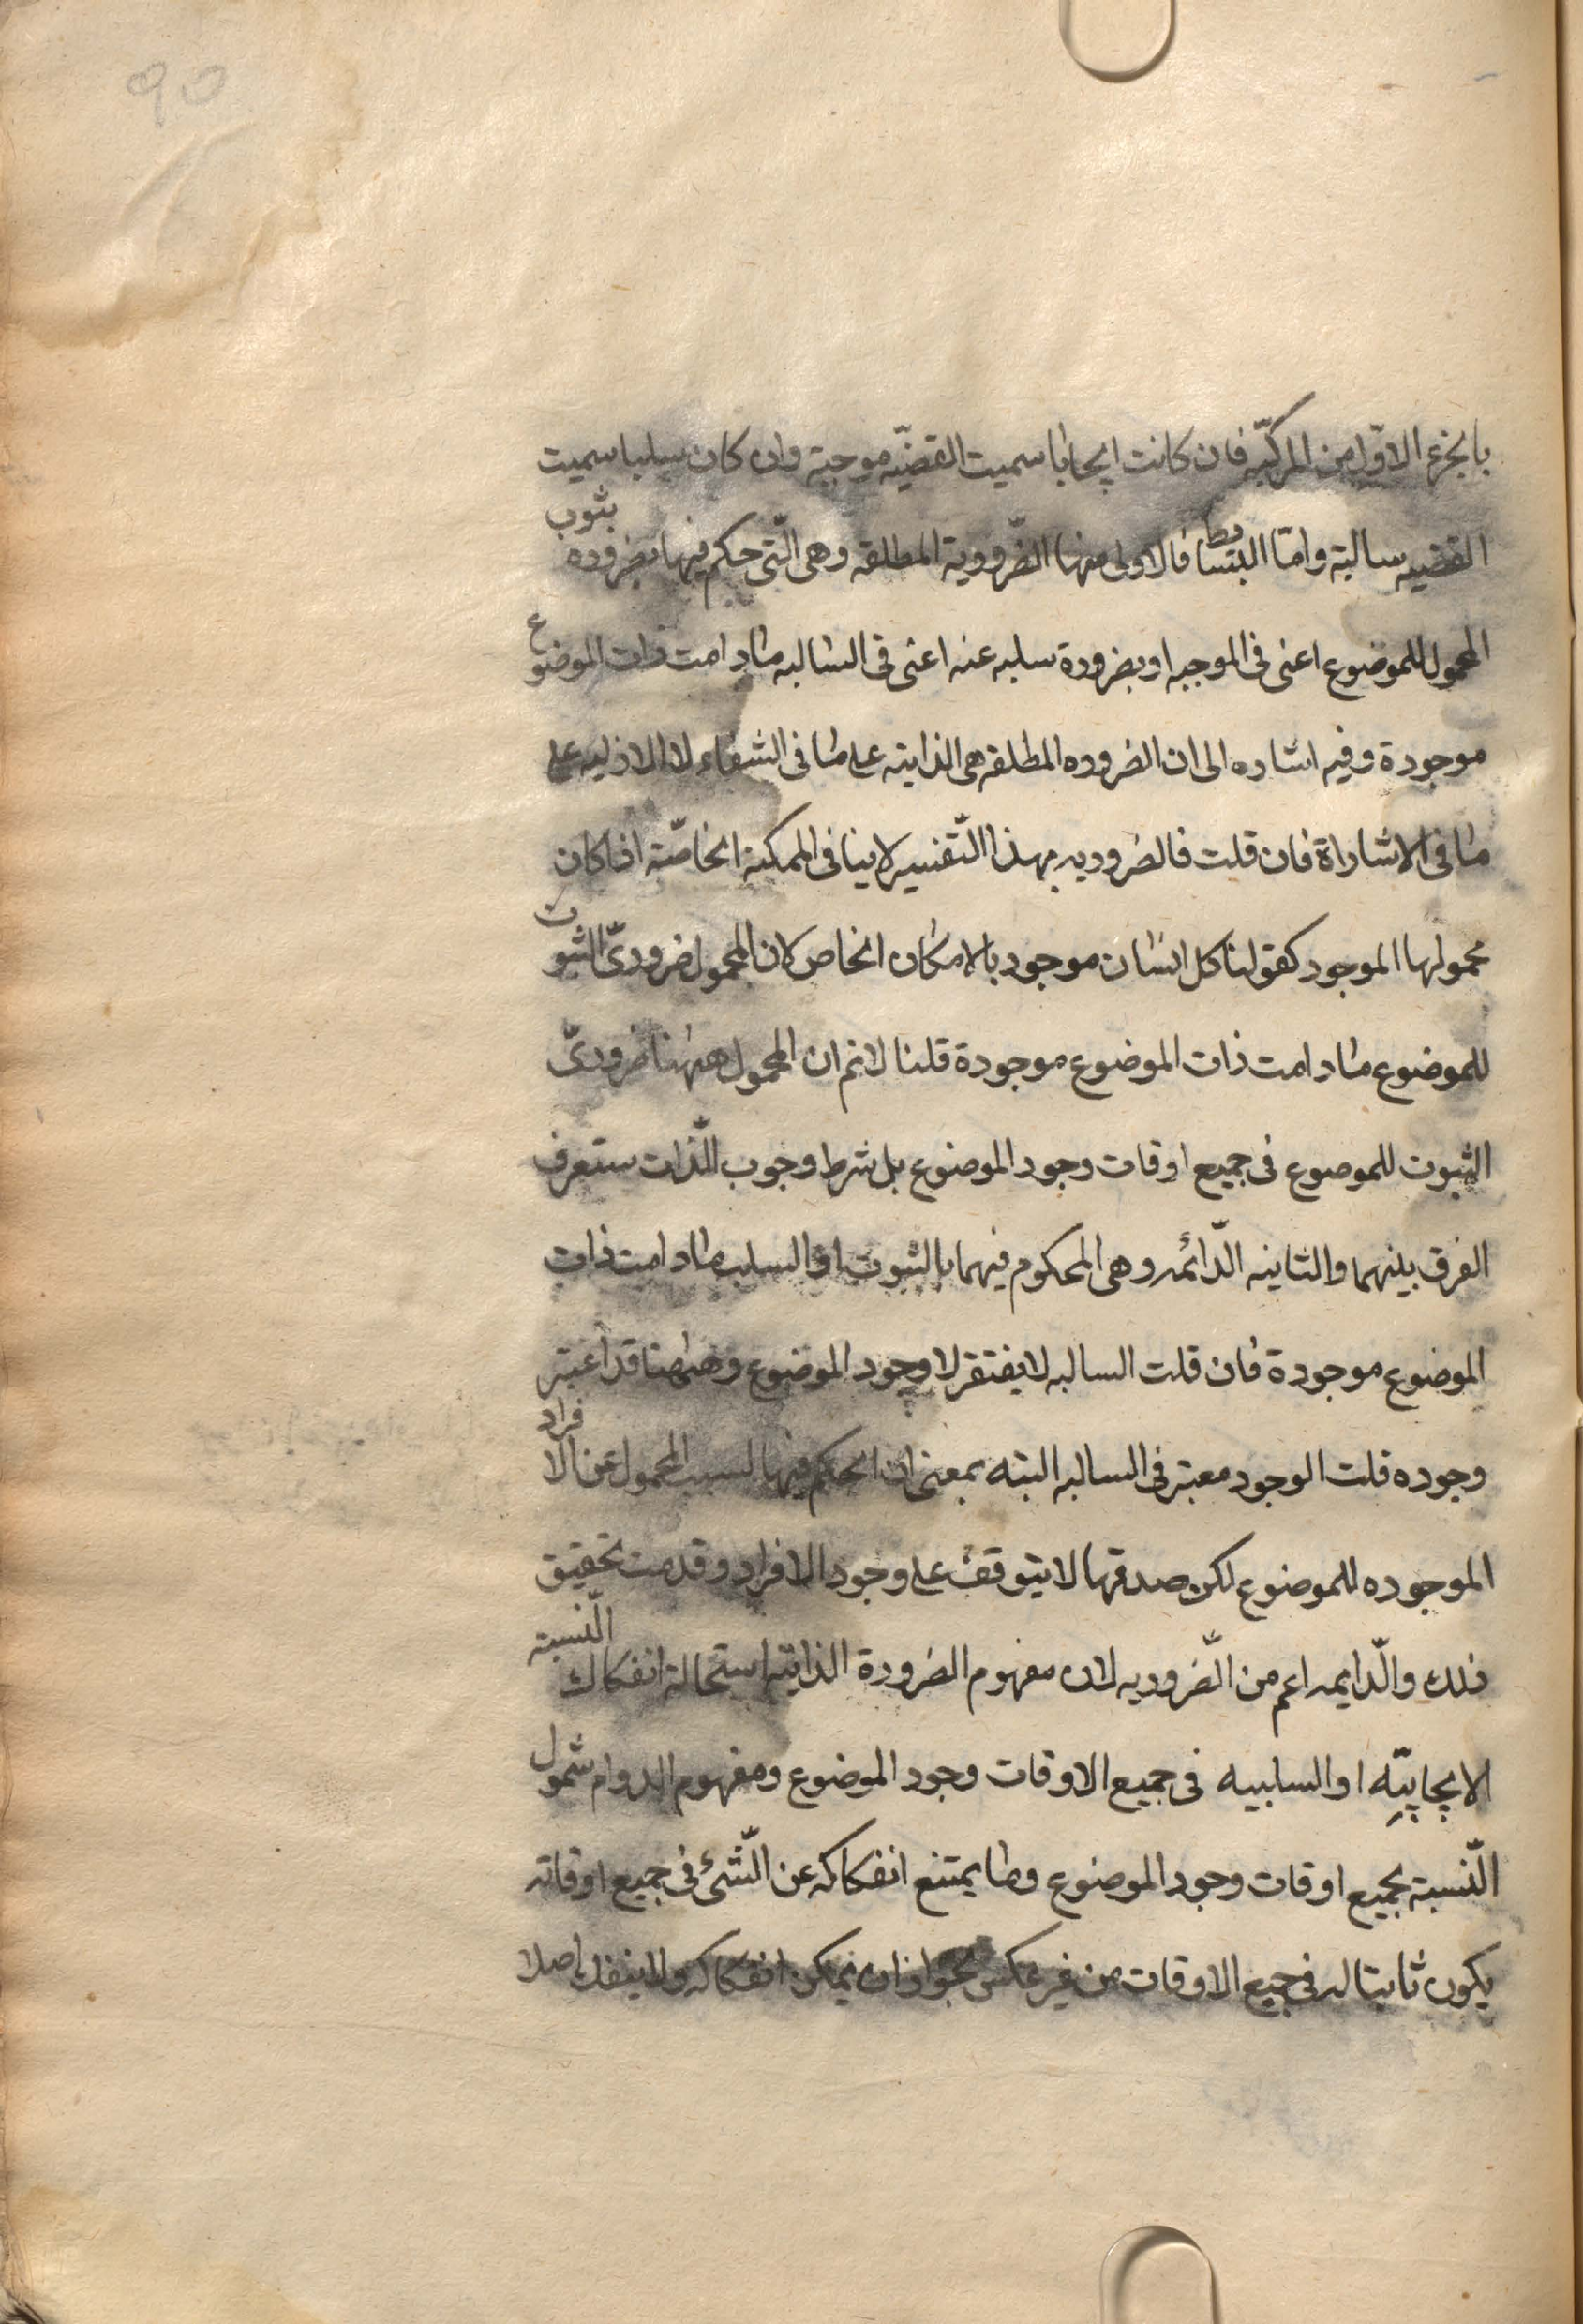 ۹۵
بالجزء الاوّل من المركبّه فان كانت ايجابا سميت القضيّه موجبة وان كان سلبا سميت
القضيه سالبة وامّا البسايط فالاولى منها الضّرورية المطلقه وهى الّتى حكم فيها بضروره بثوب
المحمول للموضوع اعنى فى الموجبه او بضرورة سلبه عنه اعنى فى السالبه مادامت ذات الموضوع
موجودة وفيه اشاره الى ان الضروره المطلقه هى الذاتيه على ما فى الشفاء لا الازليه على
ما فى الاشاراة فان قلت فالضروريه بهذا التّفسير لا ينافى الممكنة الخاصّة اذا كان
محمولها الموجود كقولنا كل انسان موجود بالامكان الخاص لان المحمول ضرورىّ الثبوت
للموضوع مادامت ذات الموضوع موجودة قلنا لانم ان المحمول ههنا ضرورىّ
الثبوت للموضوع فى جميع اوقات وجود الموضوع بل شرط وجوب الّذات ستعرف
الفرق بينهما والثانيه الدّائمه وهى المحكوم فيهما بالثبوت او السلب مادامت ذات
الموضوع موجودة فان قلت السالبه لا يفتقر لا وجود الموضوع وههنا قد اعتبر
وجوده قلت الوجود معتبر فى السالبه البته بمعنى ان الحكم فيها لسبب المحمول عن الافراد
الموجوده للموضوع لكن صدقها لا يتوقف على وجود الافراد وقد مت تحقيق
ذلك والّدايمه اعم من الّضروريه لان مفهوم الضرورة الذاتيّه استحالة انفكاك الّنسبة
الايجابيّه او السلبيه فى جميع الاوقات وجود الموضوع ومفهوم الدوام شمول
الّنسبة بجميع اوقات وجود الموضوع وما يمتنع انفكاكه عن الّشئ فى جميع اوقاته
يكون ثابتا له فى جميع الاوقات من غير عكس لجواز ان يمكن انفكاكه ولا ينفك اصلا